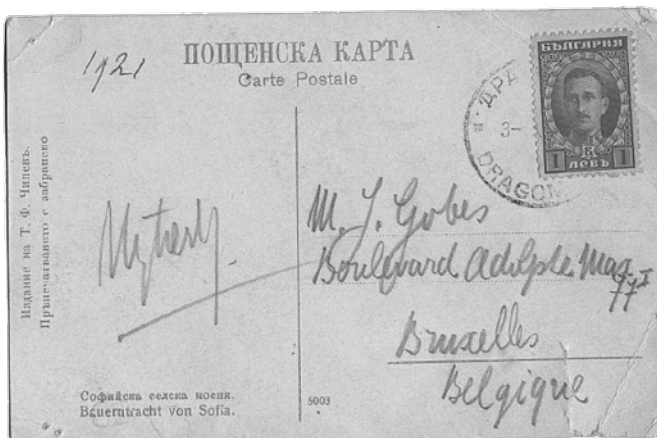 1921
ПОЩЕНСКА КАРТА
Carte Postale
БЪЛГАРИЯ
1 ЛЕВЪ 1
ДРА
3-
DRAGOM
Издание на Т. Ф. Чипевъ.
Прѣпечатването е забранено
M. J. Gobes
Boulevard Adolphe Max
77 I
Bruxelles
Belgique
Софийска селска носия.
Bauerntracht von Sofia.
5003